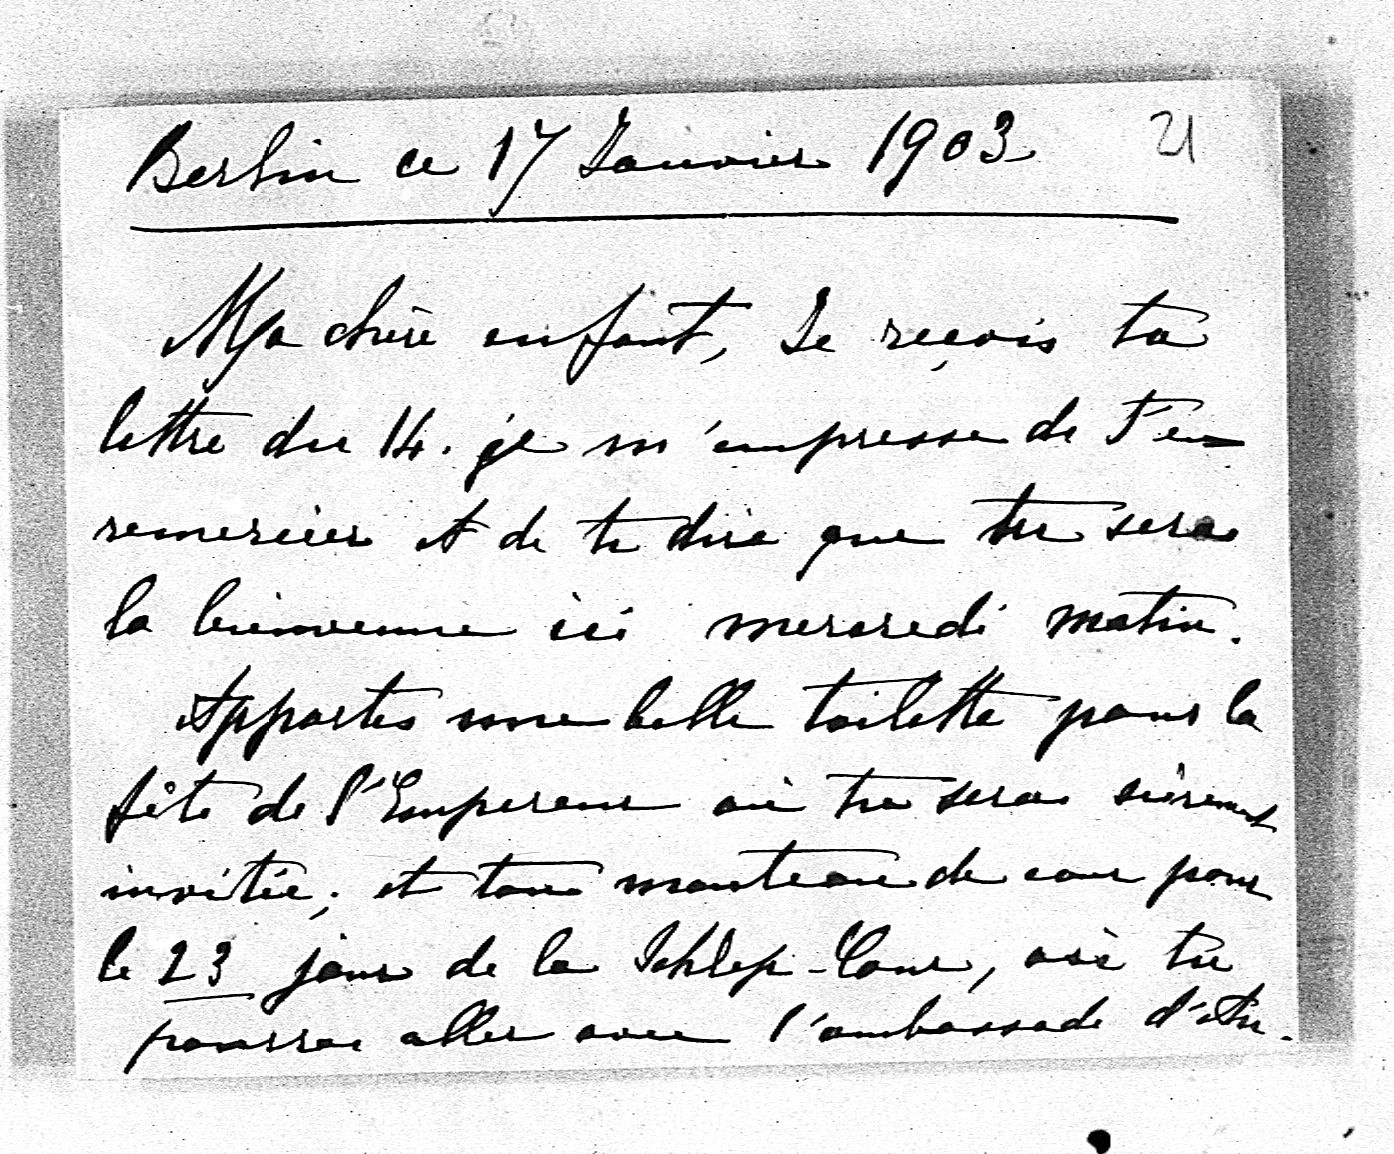 Berlin ce 17 Janvier 1903 21
Ma chère enfant, Je reçois ta
lettre du 14. je m'empresse de t'en
remercier et de te dire que tu seras
la bienvenue ici mercredi matin.
Apportes une belle toilette pour la
fête de l'Empereur où tu seras sûrement
invitée; et ton manteau de cour pour
le 23 jour de la Schlep-Cour, où tu
pourras aller avec l'ambassade d'Au-